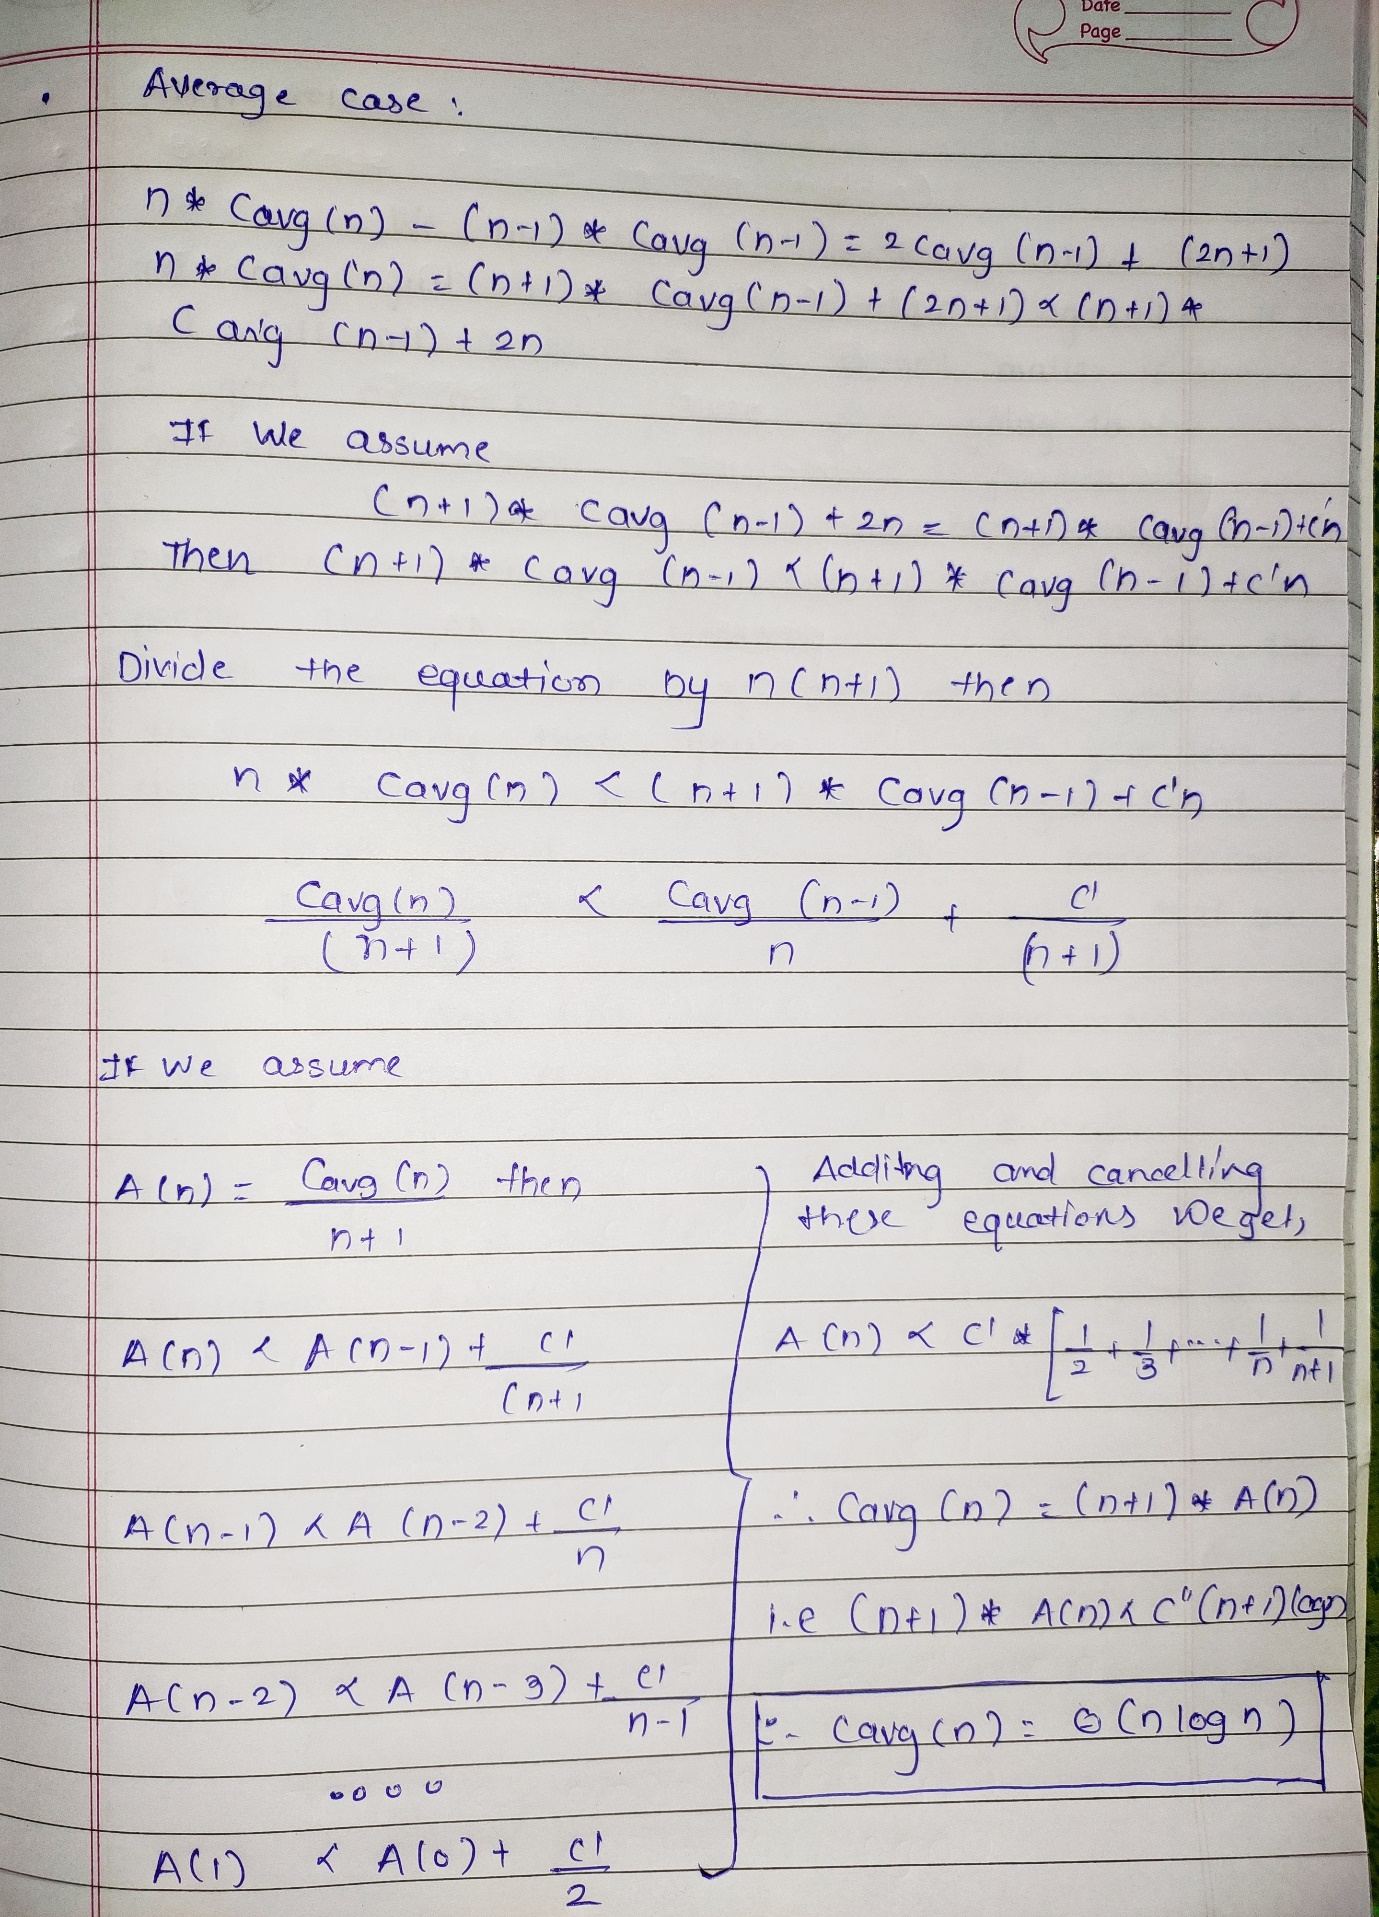 Date
Page
Average case :
n * Cavg (n) - (n-1) * Cavg (n-1) = 2 Cavg (n-1) + (2n+1)
n * Cavg (n) = (n+1) * Cavg (n-1) + (2n+1) < (n+1) *
Cavg (n-1) + 2n
If We assume
(n+1) * Cavg (n-1) + 2n = (n+1) * Cavg (n-1)+c'n
Then (n+1) * Cavg (n-1) < (n+1) * Cavg (n-1)+c'n
Divide the equation by n(n+1) then
n * Cavg (n) < (n+1) * Cavg (n-1) + c'n
Cavg(n) < Cavg (n-1) + c'
(n+1) n (n+1)
If We assume
A(n) = Cavg (n) then
n+1
A(n) < A(n-1) + c'
(n+1
A(n-1) < A (n-2) + c'
n
A(n-2) < A (n-3) + c'
n-1
....
A(1) < A(0) + c'
2
Additng and cancelling
these equations We get,
A (n) < c' * [ 1/2 + 1/3 + .... + 1/n + 1/n+1
∴ Cavg (n) = (n+1) * A(n)
i.e (n+1) * A(n) < c" (n+1) logn
∴ Cavg (n) = Θ (n log n)